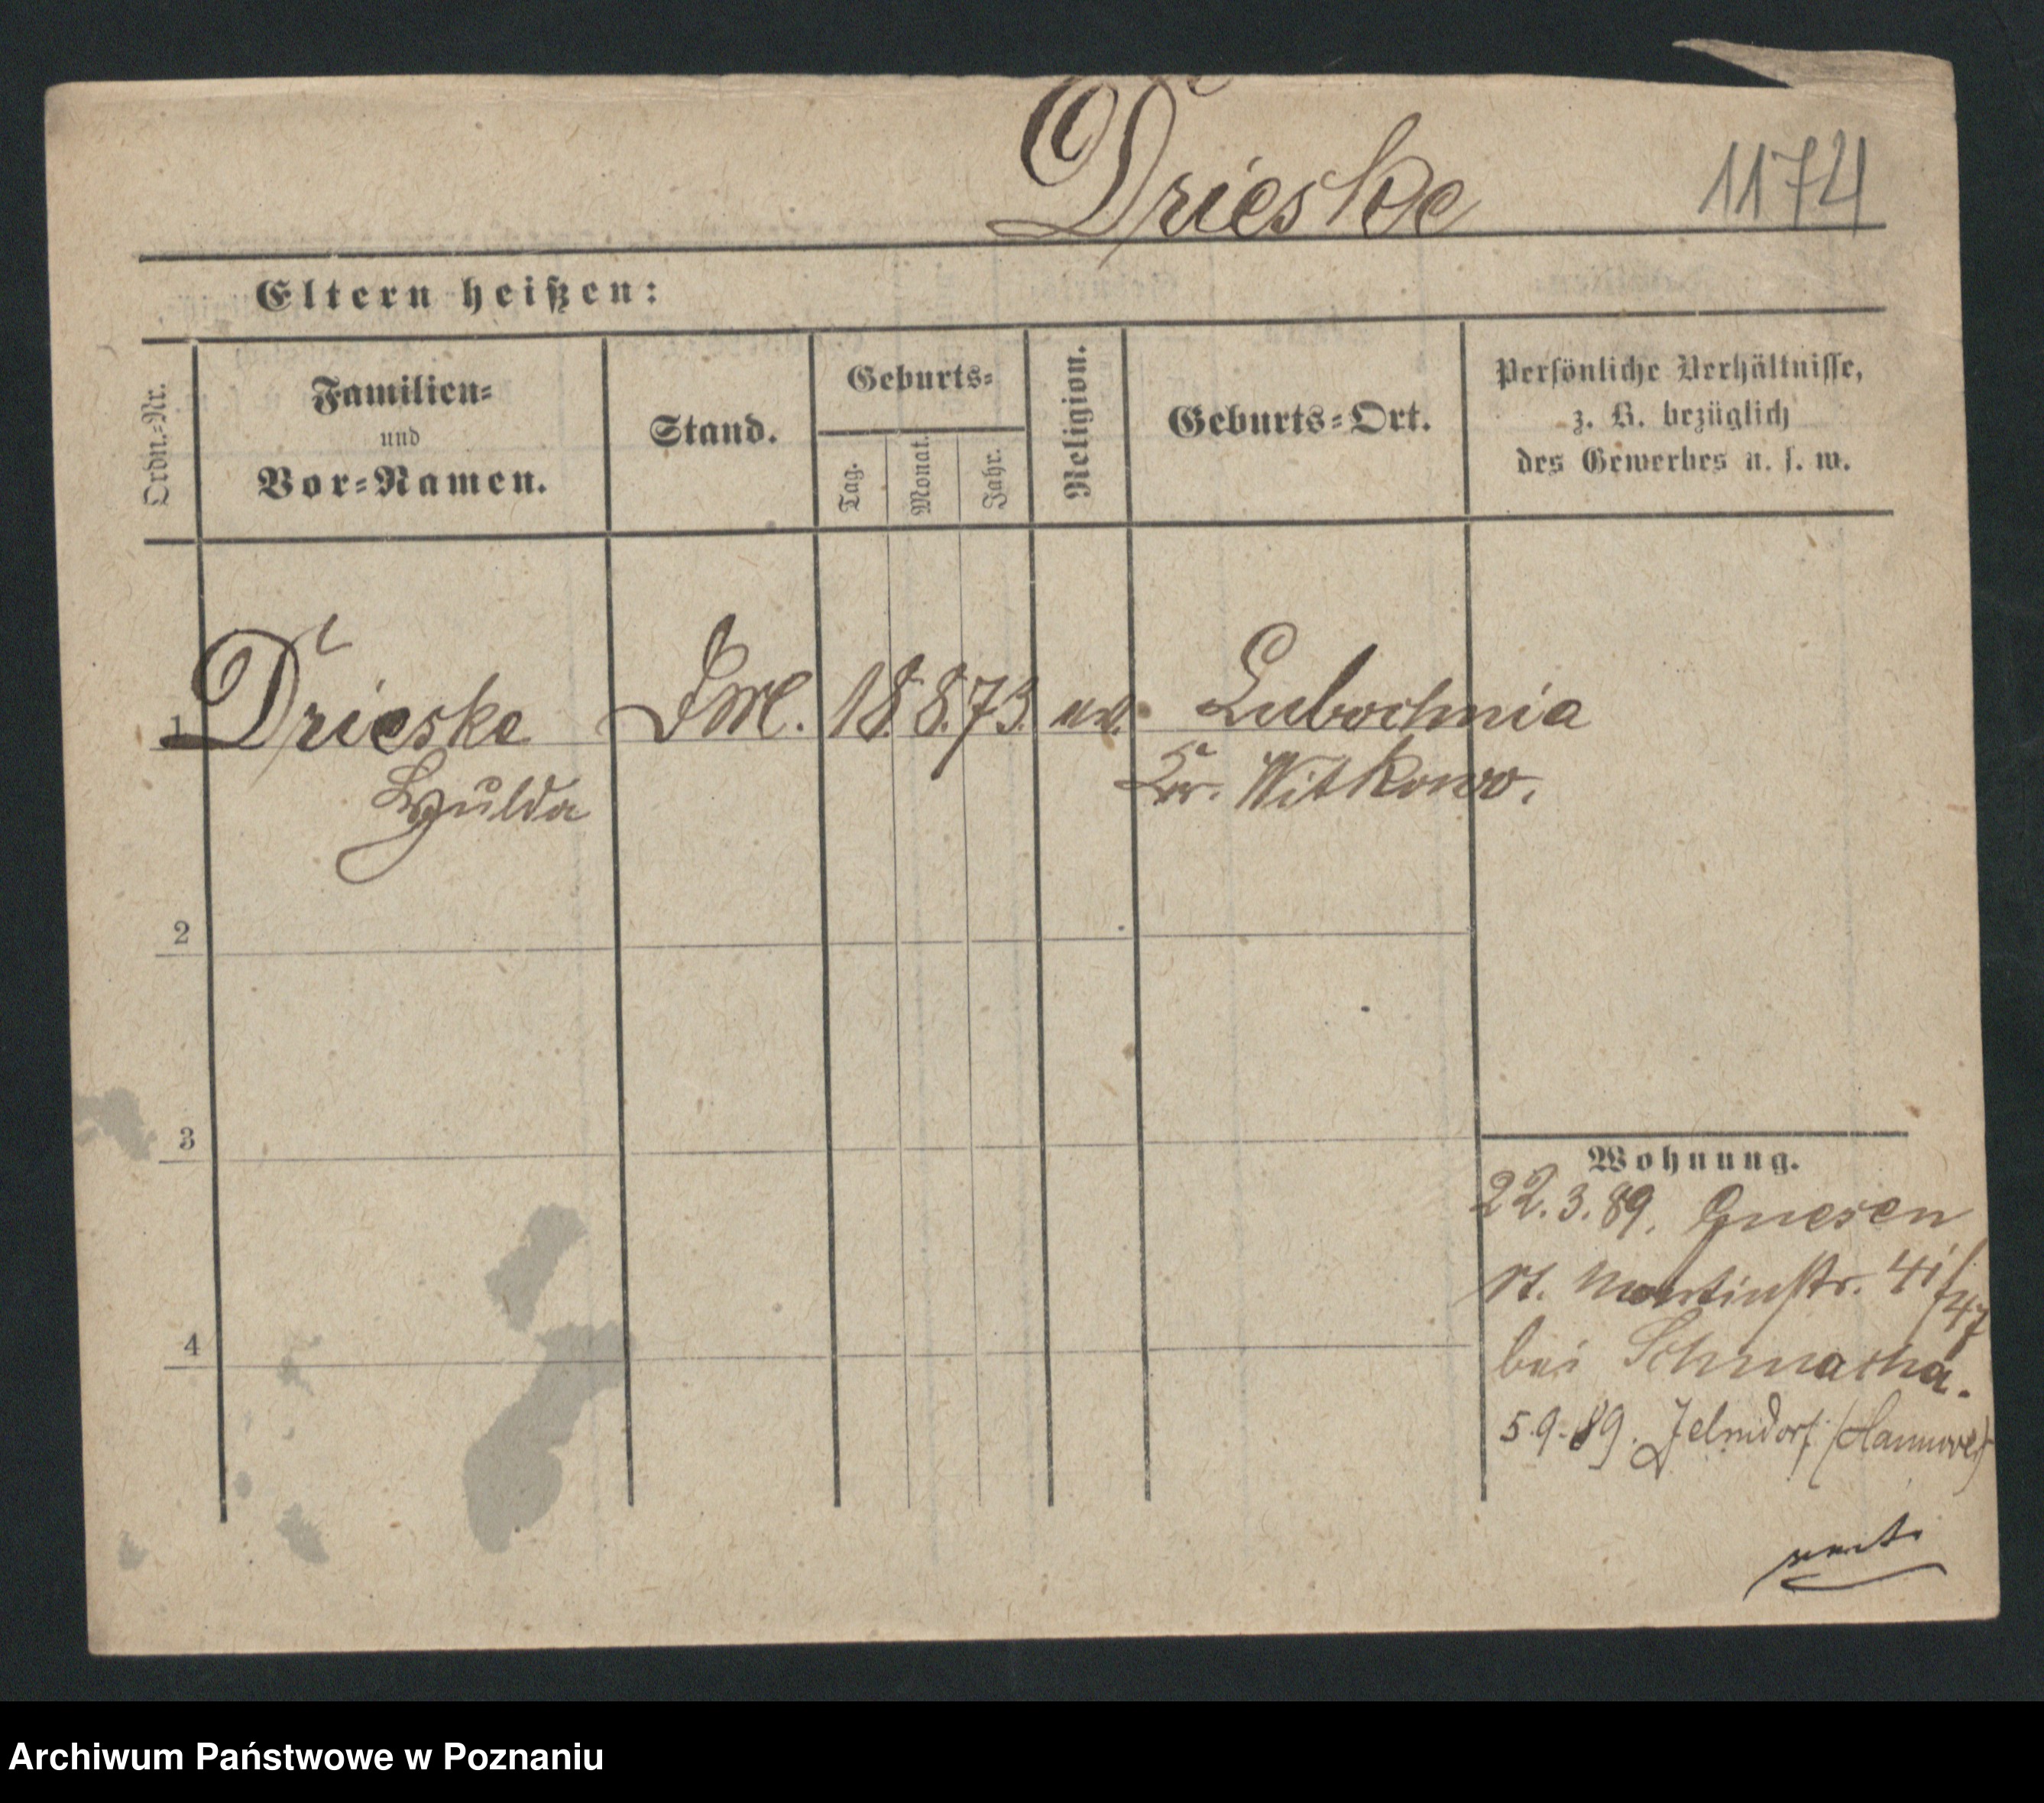 Drieske 1174
Eltern heißen:
Ordn.-Nr.
Familien-
und
Vor-Namen.
Stand.
Geburts-
Tag.
Monat.
Jahr.
Religion.
Geburts-Ort.
Persönliche Verhältnisse,
z. B. bezüglich
des Gewerbes u. s. w.
1 Drieske 18. 8. 73. Lubochnia
Hulda Kr. Witkowo.
2
3
Wohnung.
22. 3. 89. Gnesen
St. Martinstr. 41/47
4
bei
5. 9. 89. (Hannover)
Archiwum Państwowe w Poznaniu